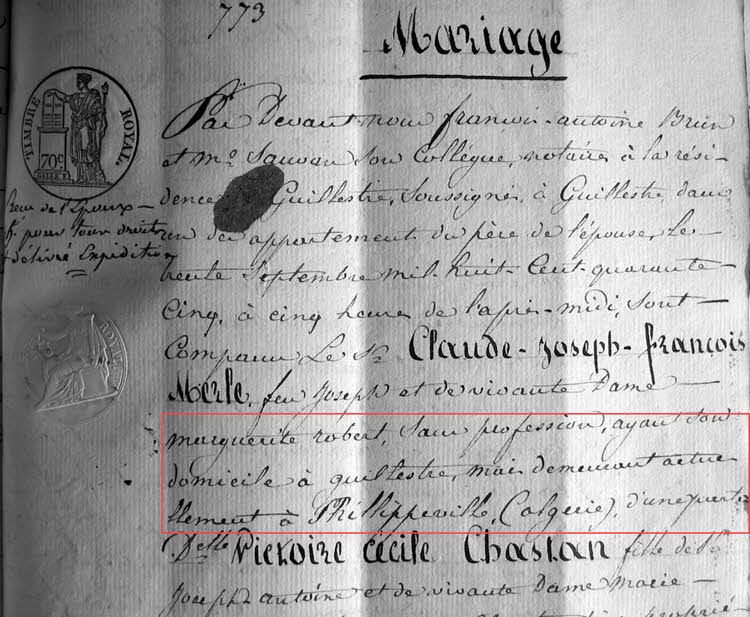 773
Mariage
TIMBRE ROYAL.
70c
Par Devant nous françois-antoine Brun
et me. Sauvan son Collégue, notaire à la rési-
dence Guillestre, soussignés, à Guillestre, dans
un des appartement du père de l'épouse, Le
trente Septembre mil-huit-Cent-quarante-
Cinq, à cinq heures de l'après-midi, sont
Comparu Le Sr. Claude-Joseph-françois
Merle, feu Joseph et de vivante Dame
marguerite robert, sans profession, ayant son
domicile à guillestre, mais demeurant actue
llement à Phillippeville, (algerie), d'une part.
Delle Victoire cécile Chastan fille de Sr.
Joseph antoine et de vivante Dame marie
de l'Epoux
pour tous droits
délivré Expédition